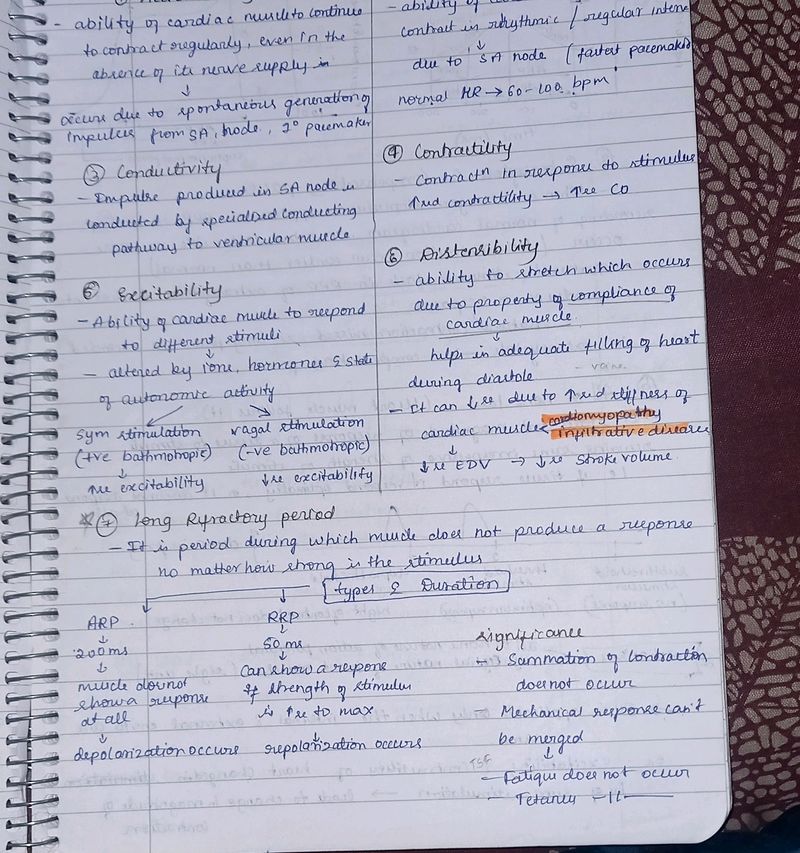 - ability of cardiac muscle to continue
to contract regularly, even in the
absence of its nerve supply
↓
occurs due to spontaneous generation of
impulses from SA node, 1° pacemaker
- ability of
contract in rhythmic / regular
↓
due to SA node (fastest pacemaker
normal HR → 60-100 bpm
③ Conductivity
- Impulse produced in SA node is
conducted by specialized conducting
pathway to ventricular muscle
④ Contractility
- Contractn in response to stimulus
↑sed contractility → ↑se CO
⑤ Excitability
- Ability of cardiac muscle to respond
to different stimuli
↓
- altered by ions, hormones & state
of autonomic activity
sym stimulation vagal stimulation
(+ve bathmotropic) (-ve bathmotropic)
↓
↑se excitability ↓se excitability
⑥ Distensibility
- ability to stretch which occurs
due to property of compliance of
cardiac muscle.
↓
helps in adequate filling of heart
during diastole
- It can ↓se due to ↑sed stiffness of
cardiac muscle < cardiomyopathy
infiltrative disease
↓
↓se EDV → ↓se Stroke volume.
⑦ Long Refractory period
- It is period during which muscle does not produce a response
no matter how strong is the stimulus
types & Duration
ARP
↓
200ms
↓
muscle does not
show a response
at all
↓
depolarization occurs
RRP
↓
50 ms
↓
Can show a respone
if strength of stimulus
is ↑se to max
↓
repolarization occurs
significance
- Summation of contraction
does not occur
- Mechanical response can't
be merged
↓
- Fatigue does not occur
- Tetany -11-